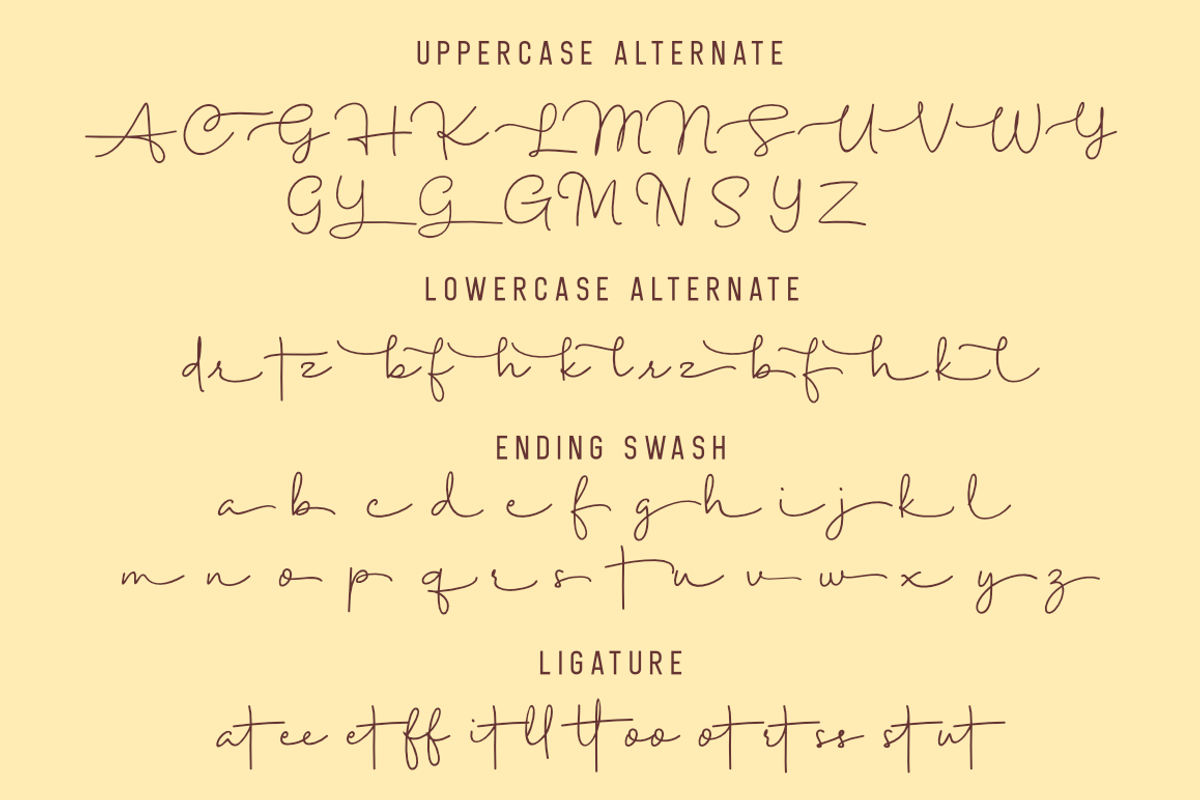 UPPERCASE ALTERNATE
A C G H K L M N S U V W Y
G Y G G M N S Y Z
LOWERCASE ALTERNATE
d r t z b f h k l r z b f h k l
ENDING SWASH
a b c d e f g h i j k l
m n o p q r s t u v w x y z
LIGATURE
at ee et ff it ll tt oo ot rt ss st ut